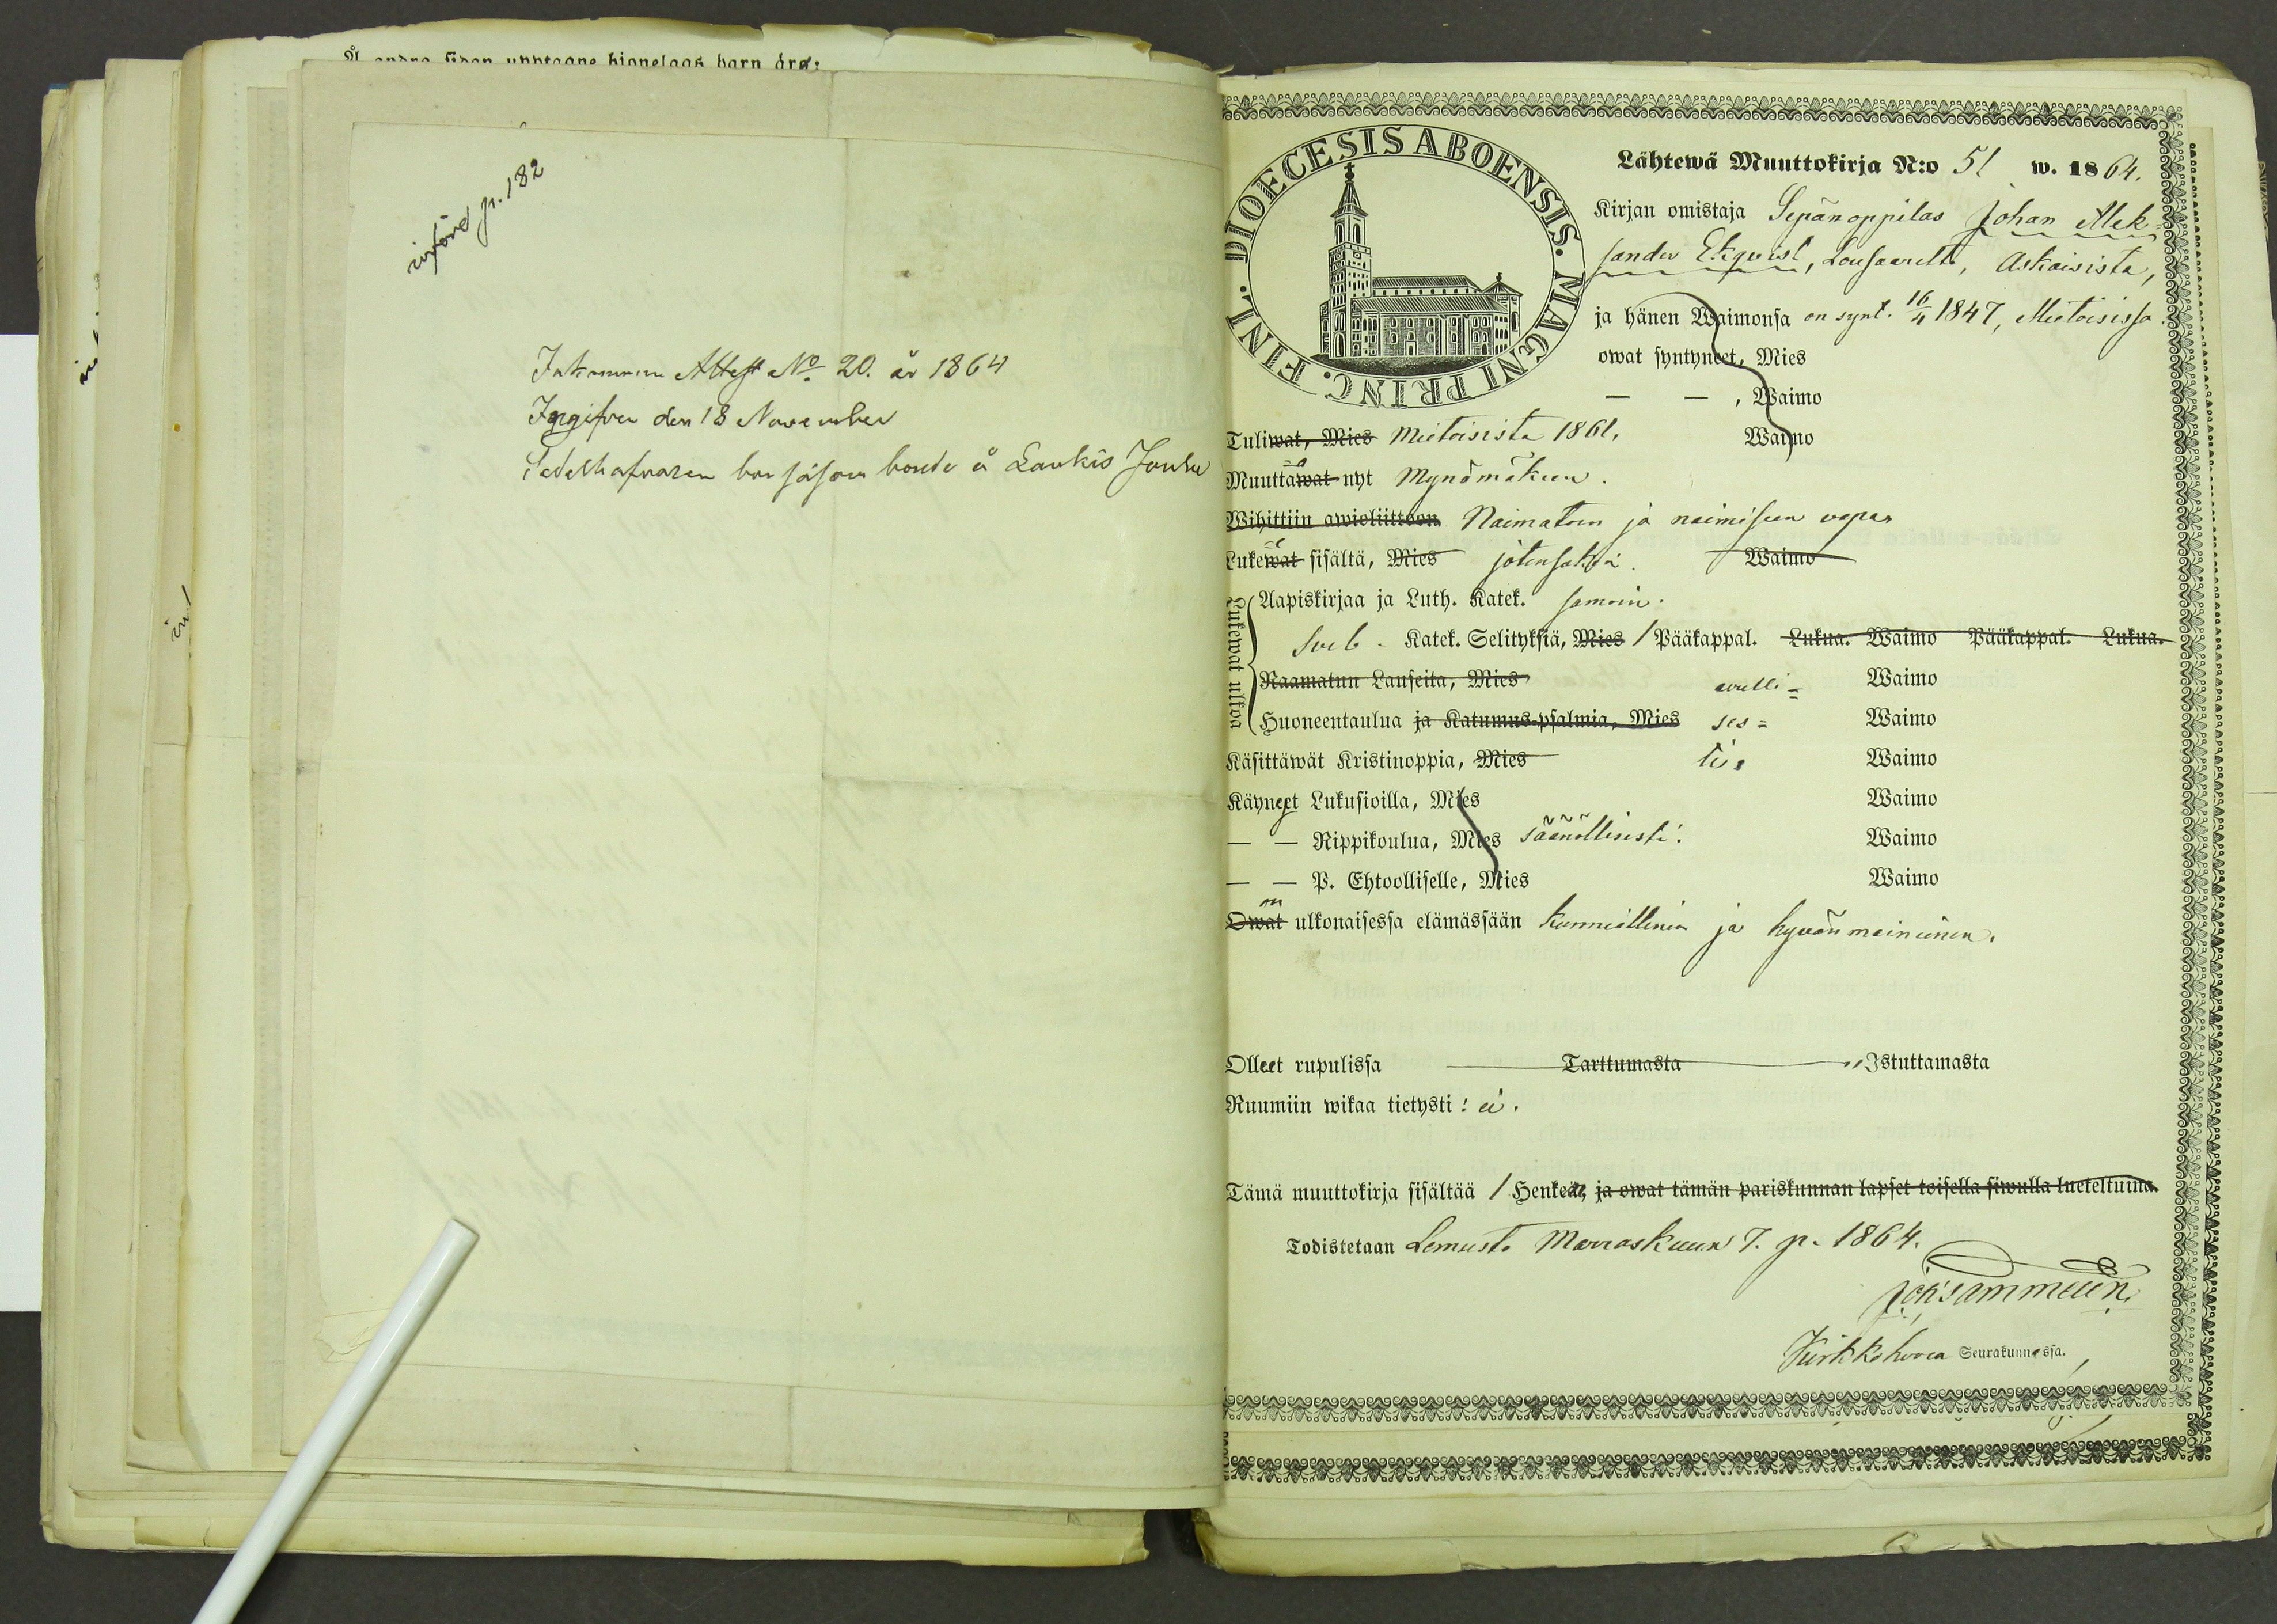 Å andra sidan upptagne hionelags barn äro:
införd p. 182
Inkommen Attest No. 20. år 1864
Ingifven den 18 November
bonde å Laukis Jouhu
DIOECESIS ABOENSIS. MAGNI PRINC. FINL.
Lähtewä Muuttokirja N:o 51 w. 1864.
Kirjan omistaja Sepänoppilas Johan Alek=
sander Ekqvist, Lousaarelta, Askaisista,
ja hänen Waimonsa on synt. 16/4 1847, Mietoisissa.
owat syntyneet, Mies
— — , Waimo
Tuliwat, Mies Mietoisista 1861. Waimo
Muuttawat nyt Mynämäkeen.
Wihittiin awioliittoon Naimatoin ja naimiseen vapaa
Lukewat sisältä, Mies jotensakin. Waimo
Lukewat ulkoa
Aapiskirjaa ja Luth. Katek. samoin.
Sveb. Katek. Selityksiä, Mies 1 Pääkappal. Lukua. Waimo Pääkappal. Lukua.
Raamatun Lauseita, Mies avulli= Waimo
Huoneentaulua ja Katumus-psalmia, Mies ses= Waimo
Käsittäwät Kristinoppia, Mies ti. Waimo
Käyneet Lukusioilla, Mies Waimo
— — Rippikoulua, Mies säänöllisesti. Waimo
— — P. Ehtoolliselle, Mies Waimo
Owat on ulkonaisessa elämässään kunniallinen ja hyvänmaineinen.
Olleet rupulissa Tarttumasta „Istuttamasta
Ruumiin wikaa tietysti: ei.
Tämä muuttokirja sisältää 1 Henkeä, ja owat tämän pariskunnan lapset toisella siwulla lueteltuina.
Todistetaan Lemusta Marraskuun 7. p. 1864.
Joh. Sammelin.
Kirkkoherra Seurakunnassa.